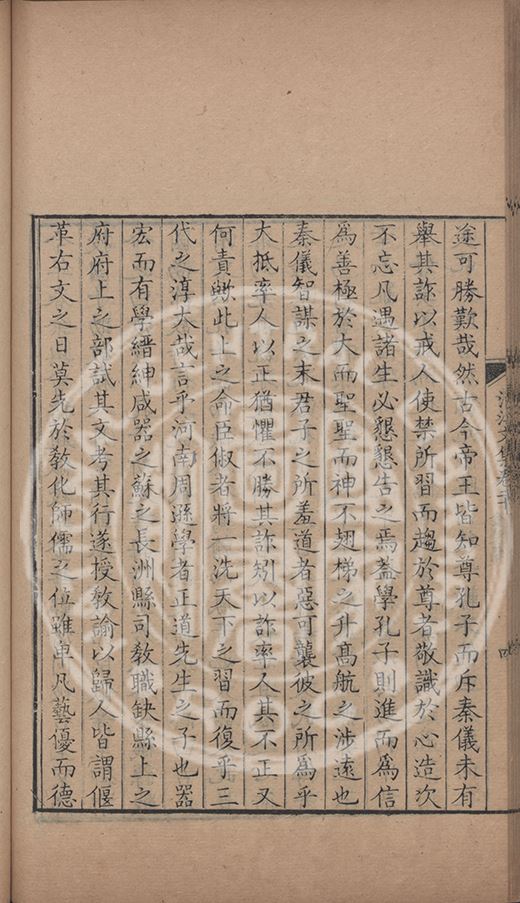 途可勝歎哉然古今帝王皆知尊孔子而斥秦儀未有
舉其詐以戒人使禁所習而趨於尊者敬識於心造次
不忘凡遇諸生必懇懇告之焉葢學孔子則進而爲信
爲善極於大而聖聖而神不翅梯之升高航之涉遠也
秦儀智謀之末君子之所羞道者惡可襲彼之所爲乎
大抵率人以正猶懼不勝其詐矧以詐率人其不正又
何責歟此上之命臣俶者將一洗天下之習而復乎三
代之淳大哉言乎河南周遜學者正道先生之子也器
宏而有學縉紳咸器之蘇之長洲縣司敎職缺縣上之
府府上之部試其文考其行遂授敎諭以歸人皆謂偃
革右文之日莫先於敎化師儒之位雖卑凡藝優而德